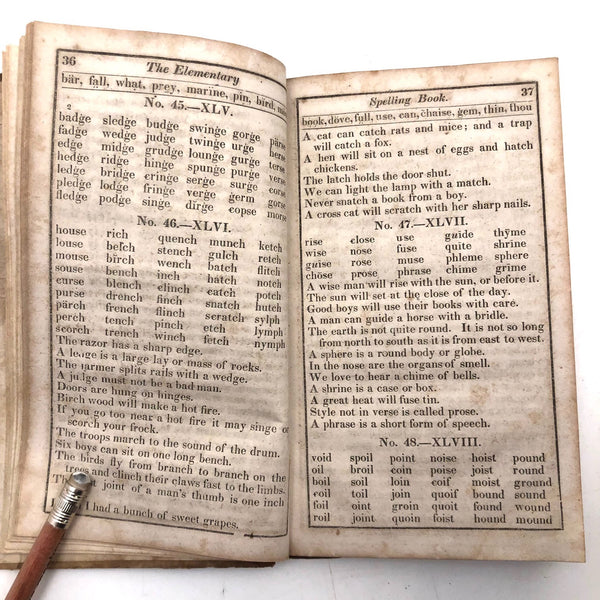 36 The Elementary
bär, fall, what, prey, marine, pin, bird,
No. 45.—XLV.
2
badge sledge budge swinge gorge parse
fadge wedge judge twinge urge berse
edge midge grudge lounge gurge terse
hedge ridge hinge spunge purge verse
ledge bridge cringe serge surge corse
pledge lodge fringe verge germ gorse
fledge podge singe dirge copse morse
No. 46.—XLVI.
house rich quench munch ketch
louse belch stench gulch retch
mouse birch wench batch flitch
souse bench inch hatch notch
curse blench clinch catch potch
purse drench finch snatch hutch
parch french flinch scratch sylph
perch tench pinch etch lymph
scorch trench winch fetch nymph
The razor has a sharp edge.
A ledge is a large lay or mass of rocks.
The farmer splits rails with a wedge.
A judge must not be a bad man.
Doors are hung on hinges.
Birch wood will make a hot fire.
If you go too near a hot fire it may singe or
scorch your frock.
The troops march to the sound of the drum.
Six boys can sit on one long bench.
The birds fly from branch to branch on the
trees and clinch their claws fast to the limbs.
joint of a man's thumb is one inch
I had a bunch of sweet grapes.
Spelling Book. 37
book, dove, full, use, can, chaise, gem, thin, thou
A cat can catch rats and mice; and a trap
will catch a fox.
A hen will sit on a nest of eggs and hatch
chickens.
The latch holds the door shut.
We can light the lamp with a match.
Never snatch a book from a boy.
A cross cat will scratch with her sharp nails.
No. 47.—XLVII.
rise close use guide thyme
wise nose fuse quite shrine
guise rose muse phleme sphere
chose prose phrase chime grime
A wise man will rise with the sun, or before it.
The sun will set at the close of the day.
Good boys will use their books with care.
A man can guide a horse with a bridle.
The earth is not quite round. It is not so long
from north to south as it is from east to west.
A sphere is a round body or globe.
In the nose are the organs of smell.
We love to hear a chime of bells.
A shrine is a case or box.
A great heat will fuse tin.
Style not in verse is called prose.
A phrase is a short form of speech.
No. 48.—XLVIII.
void spoil point noise hoist pound
oil broil coin poise joist round
boil soil loin coif moist ground
coil toil join quoif bound sound
foil oint groin quoit found wound
roil joint quoin foist hound mound